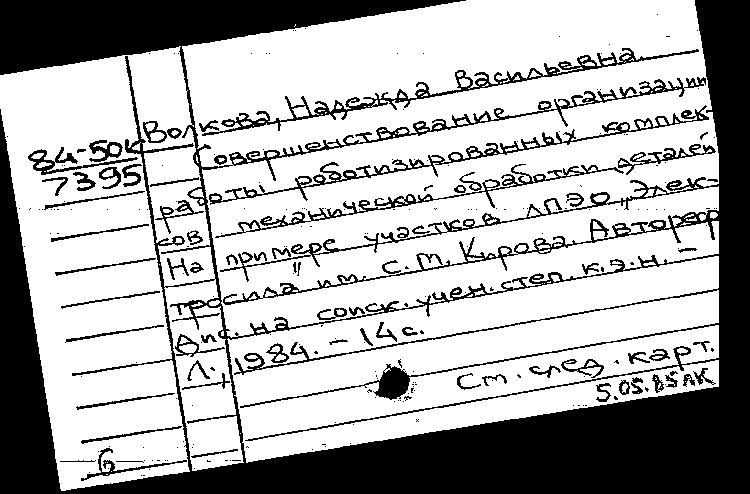 84-50к
7395
Волкова, Надежда Васильевна.
Совершенствование организации
работы роботизированных комплек-
сов механической обработки деталей
На примере участков ЛПЭО „Элек-
тросила" им. С.М. Кирова. Автореф
Дис. на соиск. учен. степ. к.э.н. –
Л., 1984. – 14 с.
См. след. карт.
5.05.85 ЛК
6